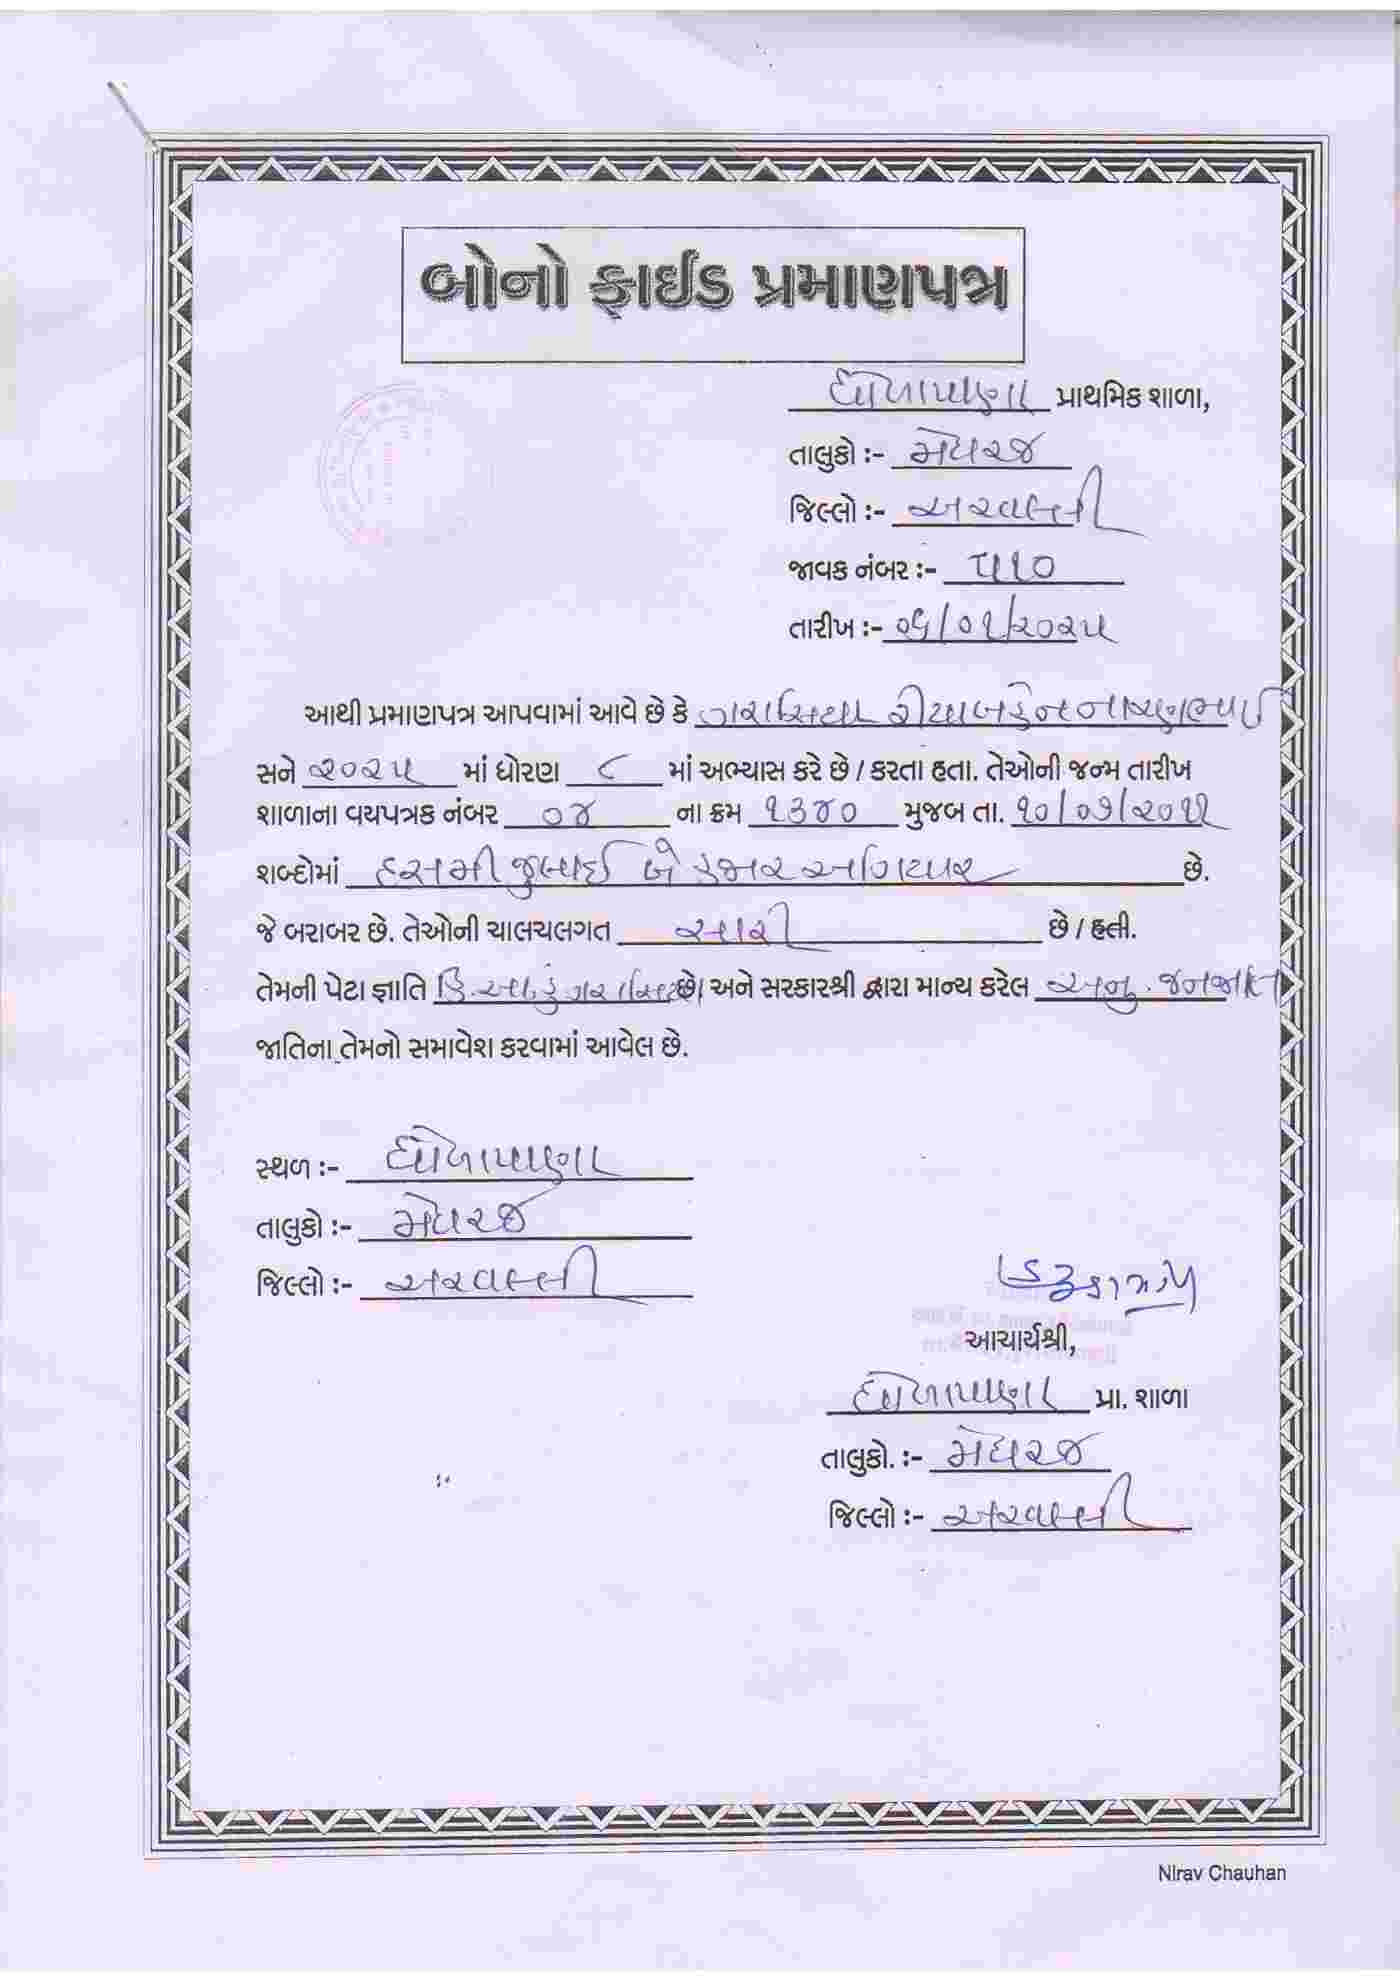 બોનો ફાઈડ પ્રમાણપત્ર
ધોળાપાણા પ્રાથમિક શાળા,
તાલુકો :- મેઘરજ
જિલ્લો :- અરવલ્લી
જાવક નંબર :- ૫૧૦
તારીખ :- ૨૬/૦૧/૨૦૨૫
આથી પ્રમાણપત્ર આપવામાં આવે છે કે ગરાસિયા રીયાબહેન નારણભાઈ
સને ૨૦૨૫ માં ધોરણ ૮ માં અભ્યાસ કરે છે / કરતા હતા. તેઓની જન્મ તારીખ
શાળાના વયપત્રક નંબર ૦૪ ના ક્રમ ૧૩૪૦ મુજબ તા. ૧૦/૦૭/૨૦૧૧
શબ્દોમાં દસમી જુલાઈ બે હજાર અગિયાર છે.
જે બરાબર છે. તેઓની ચાલચલગત સારી છે / હતી.
તેમની પેટા જ્ઞાતિ ડુંગરી ગરાસિયા છે/ અને સરકારશ્રી દ્વારા માન્ય કરેલ અનુ. જનજાતિ
જાતિના તેમનો સમાવેશ કરવામાં આવેલ છે.
સ્થળ :- ધોળાપાણા
તાલુકો :- મેઘરજ
જિલ્લો :- અરવલ્લી
આચાર્યશ્રી,
ધોળાપાણા પ્રા. શાળા
તાલુકો. :- મેઘરજ
જિલ્લો :- અરવલ્લી
Nirav Chauhan